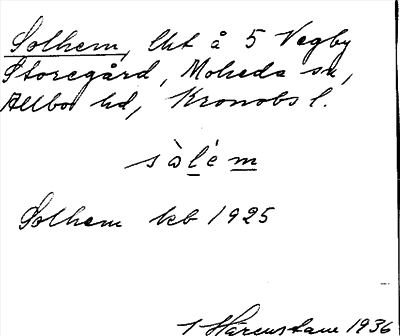 Solhem, lht å 5 Vegby
Storegård, Moheda sn,
Allbo hd, Kronobs l.
sòlém
Solhem kb 1925
1936